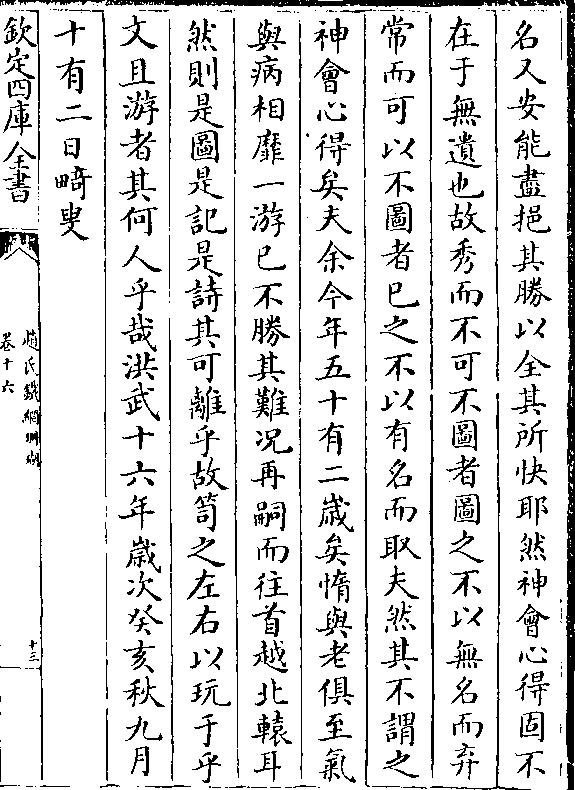 名又安能盡挹其勝以全其所快耶然神會心得固不
在于無遺也故秀而不可不圖者圖之不以無名而弃
常而可以不圖者已之不以有名而取夫然其不謂之
神會心得矣夫余今年五十有二歲矣惰與老俱至氣
與病相靡一游已不勝其難况再嗣而往首越北轅耳
然則是圖是記是詩其可離乎故笥之左右以玩于乎
文且游者其何人乎哉洪武十六年歲次癸亥秋九月
十有二日畸叟
欽定四庫全書
趙氏鐵網珊瑚
卷十六
十三